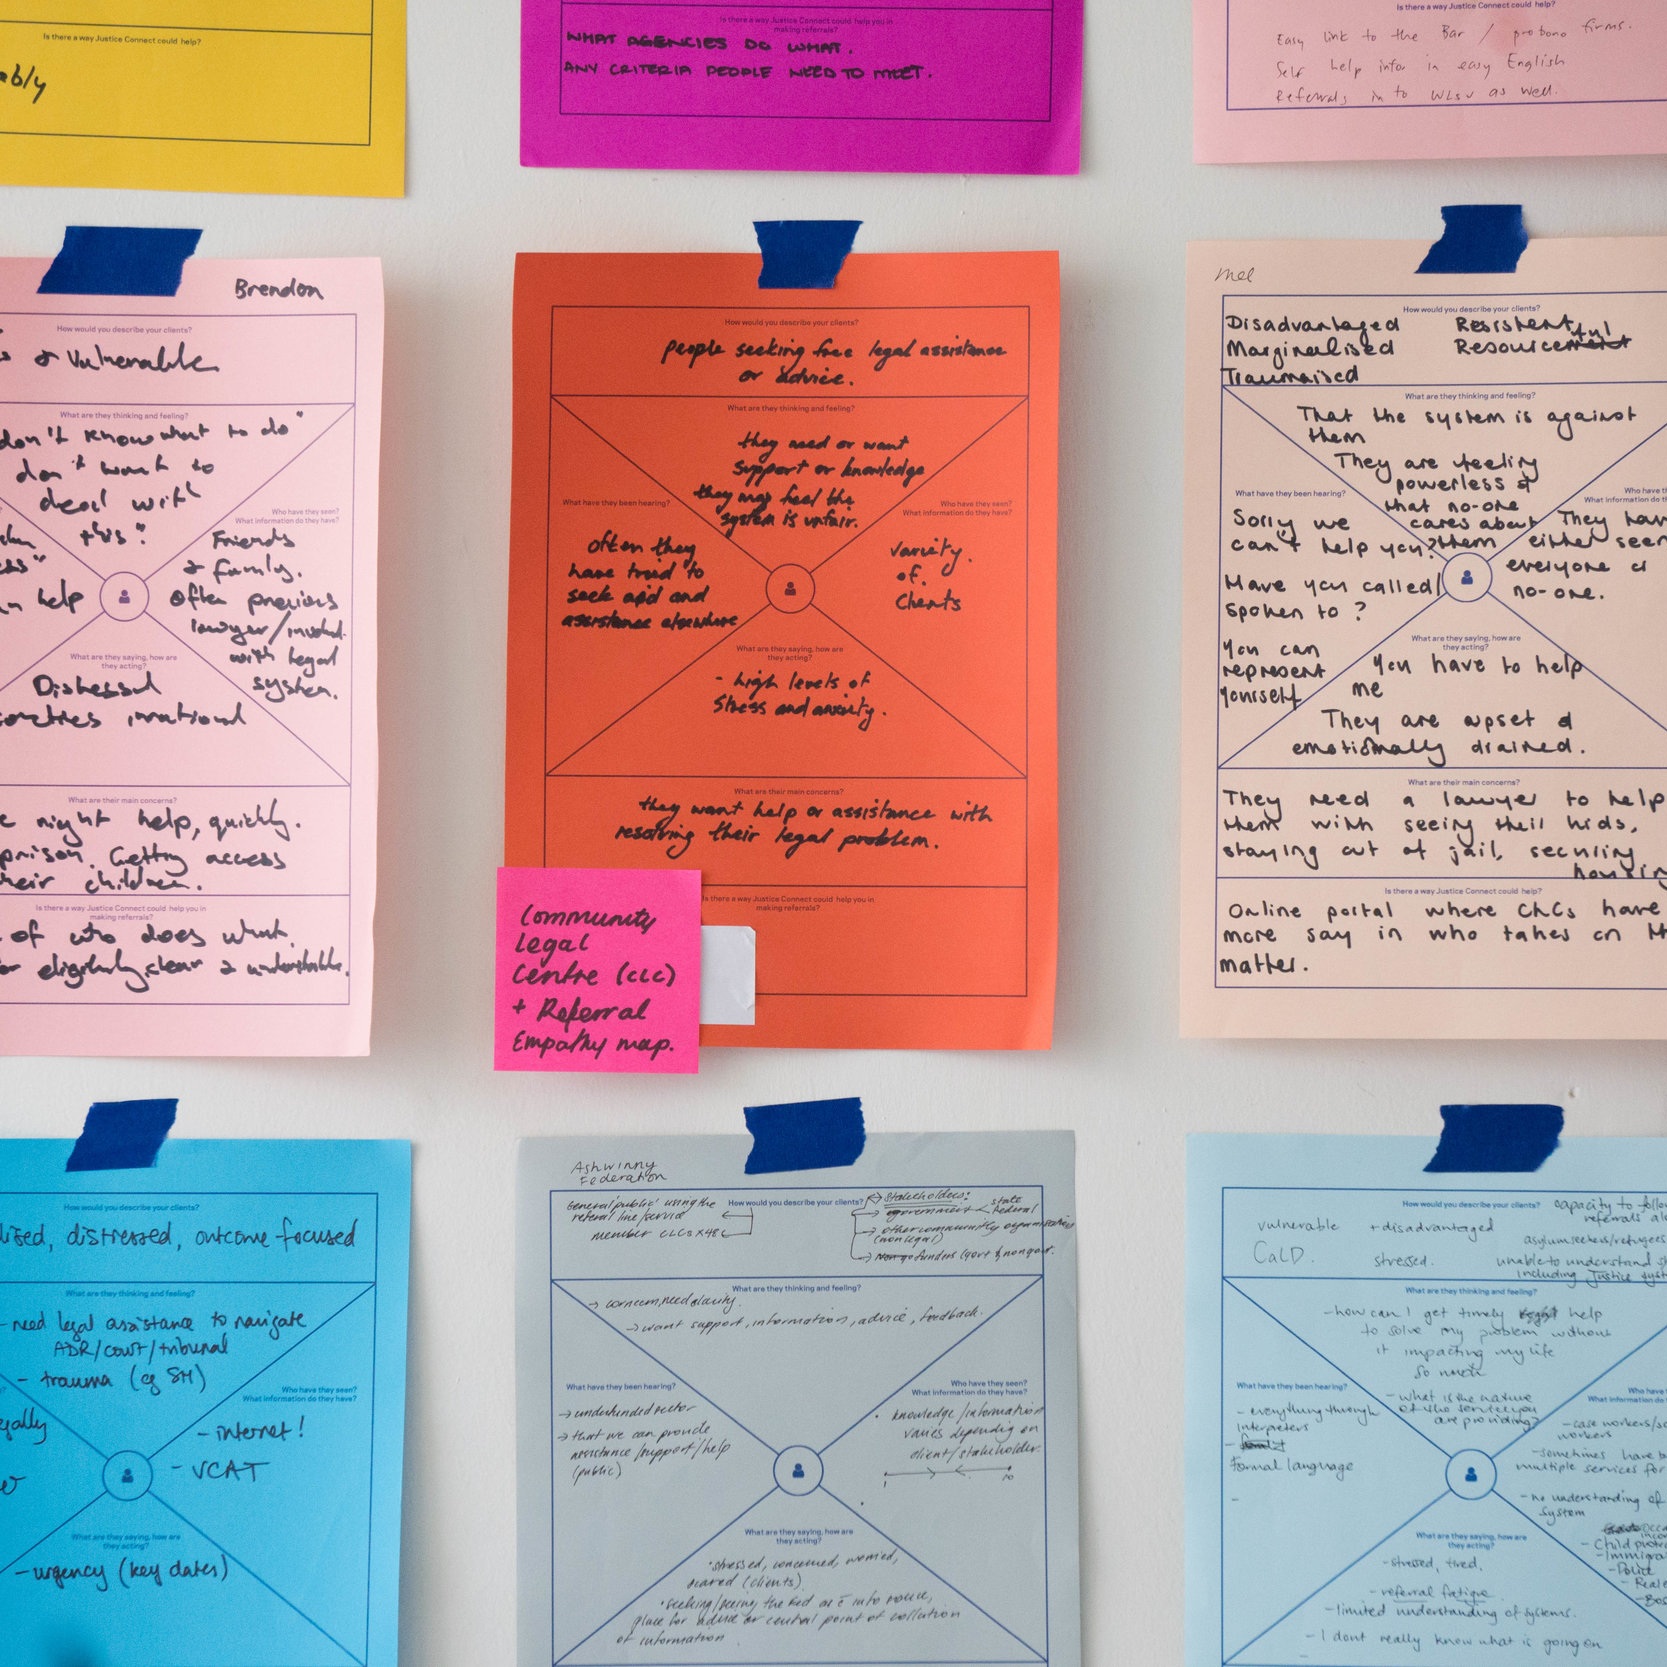 Is there a way Justice Connect could help?
ably
Is there a way Justice Connect could help you in
making referrals?
WHAT AGENCIES DO WHAT.
ANY CRITERIA PEOPLE NEED TO MEET.
Is there a way Justice Connect could help?
Easy link to the Bar / probono firms.
Self help infor in easy English
Referrals in to WLSV as well.
Brendon
How would you describe your clients?
& Vulnerable
What are they thinking and feeling?
don't know what to do"
don't want to
deal with
this"
Who have they seen?
What information do they have?
Friends
& family.
Often previous
lawyer/involvd.
with legal
system.
help
What are they saying, how are
they acting?
Distressed
irrational
What are their main concerns?
night help, quickly.
prison. Getting access
their children.
Is there a way Justice Connect could help you in
making referrals?
of who does what.
eligibility, clear &
How would you describe your clients?
people seeking free legal assistance
or advice.
What are they thinking and feeling?
they need or want
support or knowledge
they may feel the
system is unfair.
What have they been hearing?
often they
have tried to
seek aid and
assistance elsewhere
Who have they seen?
What information do they have?
variety.
of.
Clients
What are they saying, how are
they acting?
- high levels of
stress and anxiety.
What are their main concerns?
they want help or assistance with
resolving their legal problem.
Is there a way Justice Connect could help you in
making referrals?
Community
Legal
Centre (CLC)
+ Referral
Empathy map.
Mel
How would you describe your clients?
Disadvantaged Resistent
Marginalised Resourceful
Traumaised
What are they thinking and feeling?
That the system is against
them
They are feeling
powerless &
that no-one
cares about
them
What have they been hearing?
Sorry we
can't help you?
Have you called/
spoken to?
You can
represent
yourself
Who have t
What information do the
They hav
either seen
everyone or
no-one.
What are they saying, how are
they acting?
You have to help
me
They are upset &
emotionally drained.
What are their main concerns?
They need a lawyer to help
them with seeing their kids,
staying out of jail, securing
housing
Is there a way Justice Connect could help?
Online portal where CLCs have
more say in who takes on th
matter.
How would you describe your clients?
lised, distressed, outcome focused
What are they thinking and feeling?
- need legal assistance to navigate
ADR/court/tribunal
- trauma (eg SH)
gally
Who have they seen?
What information do they have?
- internet!
- VCAT
What are they saying, how are
they acting?
- urgency (key dates)
Ashwinny
Federation
How would you describe your clients?
General 'public' using the
referral line/service
member CLCs x48
Stakeholders:
government
state
federal
other community organisations
(non legal)
funders (govt & non govt.
What are they thinking and feeling?
→ concern, need clarity.
→ want support, information, advice, feedback.
What have they been hearing?
→ underfunded sector
→ that we can provide
assistance/support/help
(public)
Who have they seen?
What information do they have?
• knowledge/information
varies depending on
client/stakeholder.
1 10
What are they saying, how are
they acting?
• stressed, concerned, worried,
scared (clients).
• seeking/seeing the Fed as
place for advice or central point of collation
of information
How would you describe your clients?
vulnerable + disadvantaged
CaLD. stressed.
capacity to follow
referrals al
asylumseekers/refugees
unable to understand s
including Justice syst
What are they thinking and feeling?
- how can I get timely help
to solve my problem without
it impacting my life
so much
- what is the nature
of the service you
are providing?
What have they been hearing?
- everything through
interpreters
Formal language
-
Who have
What information do the
- case workers/so
workers
- sometimes have b
multiple services for
- no understanding of
system
- Child prote
- Immigra
- Police
- Real e
What are they saying, how are
they acting?
- stressed, tired,
- referral fatigue
- limited understanding of systems.
- I dont really know what is going on